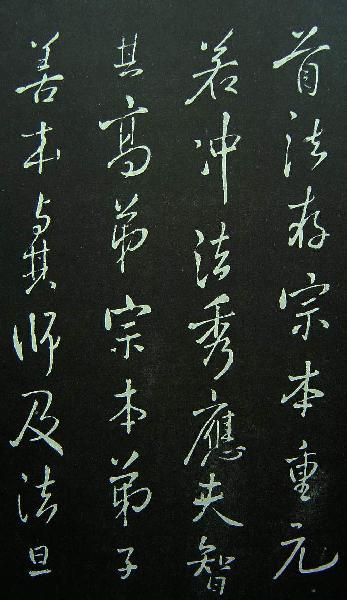 首法存宗本重元
若冲法秀應夫智
其高弟宗本弟子
善本与其師及法旦